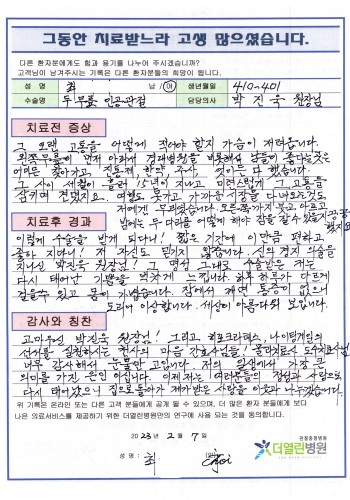 그동안 치료받느라 고생 많으셨습니다.
다른 환자분에게도 힘과 용기를 나누어 주시겠습니까?
고객님이 남겨주시는 기록은 다른 환자분들의 희망이 됩니다.
성 명 최 남 / 여 생년월일 410-401
수술명 두무릎 인공관절 담당의사 박진국 원장님
치료전 증상
그 오랜 고통을 어떻게 적어야 할지 가슴이 저려옵니다.
왼쪽무릎이 먼저 아파서 경대병원을 비롯해서 남들이 좋다는 곳은
어디든 찾아가고, 진통제, 한약, 주사, 것이란 다 했습니다.
그 사이 세월이 흘러 15년이 지나고 미련스럽게 그 고통을
삼키며 견뎠지요. 여행도 못가고 가까운 시장을 다녀오는것도
저에겐 무리였습니다. 오른쪽까지 붓고 아프고
밤에는 두 다리를 어떻게 해야 잠을 잘 수 있을지 끙끙
했지요
치료후 경과
이렇게 수술을 받게 되다니! 짧은 기간에 이만큼 편하고
좋아 지다니! 저 자신도 믿기지 않습니다. 신의 경지 수술을
지니신 박진국 원장님! 그 명성 그대로 수술받은 저는
다시 태어난 기쁨을 벅차게 느낍니다. 하루 하루가 다르게
걸을수 있고 몸이 가볍습니다. 잠에서 깨면 통증이 없으니
도리어 이상합니다. 세상이 아름다워 보입니다.
감사와 칭찬
고마우신 박진국 원장님! 그리고 히포크라테스, 나이팅게일의
선서를 실천하시는 천사의 마음 간호사님들! 물리치료사 도수치료사님
너무 감사해서 눈물만 고입니다. 저의 일생에서 가장 큰
의미를 가진 은인 이십니다. 이제 저는 여러분들의 정성과 사랑으로
다시 태어났으니 집으로 돌아가 제가받은 사랑을 이웃과 나누겠습니다.
위 기록은 온라인 또는 다른 환자 분들에게 공개 될 수 있으며, 더 많은 환자 분들에게 보다
나은 의료서비스를 제공하기 위한 더열린병원만의 연구에 사용 되는 것을 동의합니다.
2023년 2월 7일
성 명 : 최
관절중점병원
더열린병원